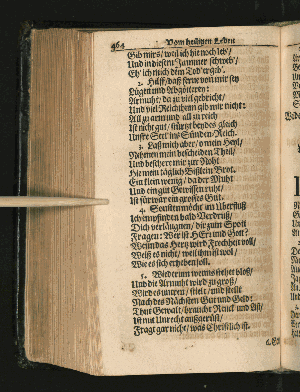 464 Vom heiligen Leben
Gib mirs/ weil ich hie noch leb'/
Und in diesem Jammer schweb'/
Eh' ich mich dem Tod' ergib'.
2. Hilff/ daß ferne von mir sey
Lügen und Abgötterey:
Armuht/ da zu viel gebricht/
Und viel Reichthum gib mir nicht:
All zu arm und all zu reich
Ist nicht gut/ stürzt beydes gleich
Unsre Seel' ins Sünden-Reich.
3. Laß mich aber/ o mein Heyl/
Nehmen mein bescheiden Theil/
Und beschere mir zur Noht
Hie mein täglich Bißlein Brot.
Ein klein wenig/ da der Muht
Und ein gut Gewissen ruht/
Ist fürwar ein grosses Gut.
4. Sonsten möcht' im Uberfluß
Ich empfinden bald Verdruß/
Dich verläugnen/ dir zum Spott
Fragen: Wer ist HErr und Gott?
Wenn das Herz wird Frechheit voll/
Weiß es nicht/ weil ihm ist wol/
Wie es sich erheben soll.
5. Wiedrum wenns stehet bloß/
Und die Armuht wird zu groß/
Wird es untreu/ stielt/ und stellt
Nach des Nächsten Gut und Geld:
Thut Gewalt/ braucht Ränck' und List/
Ist mit Unrecht außgerüst/
Fragt gar nicht/ was Christlich ist.